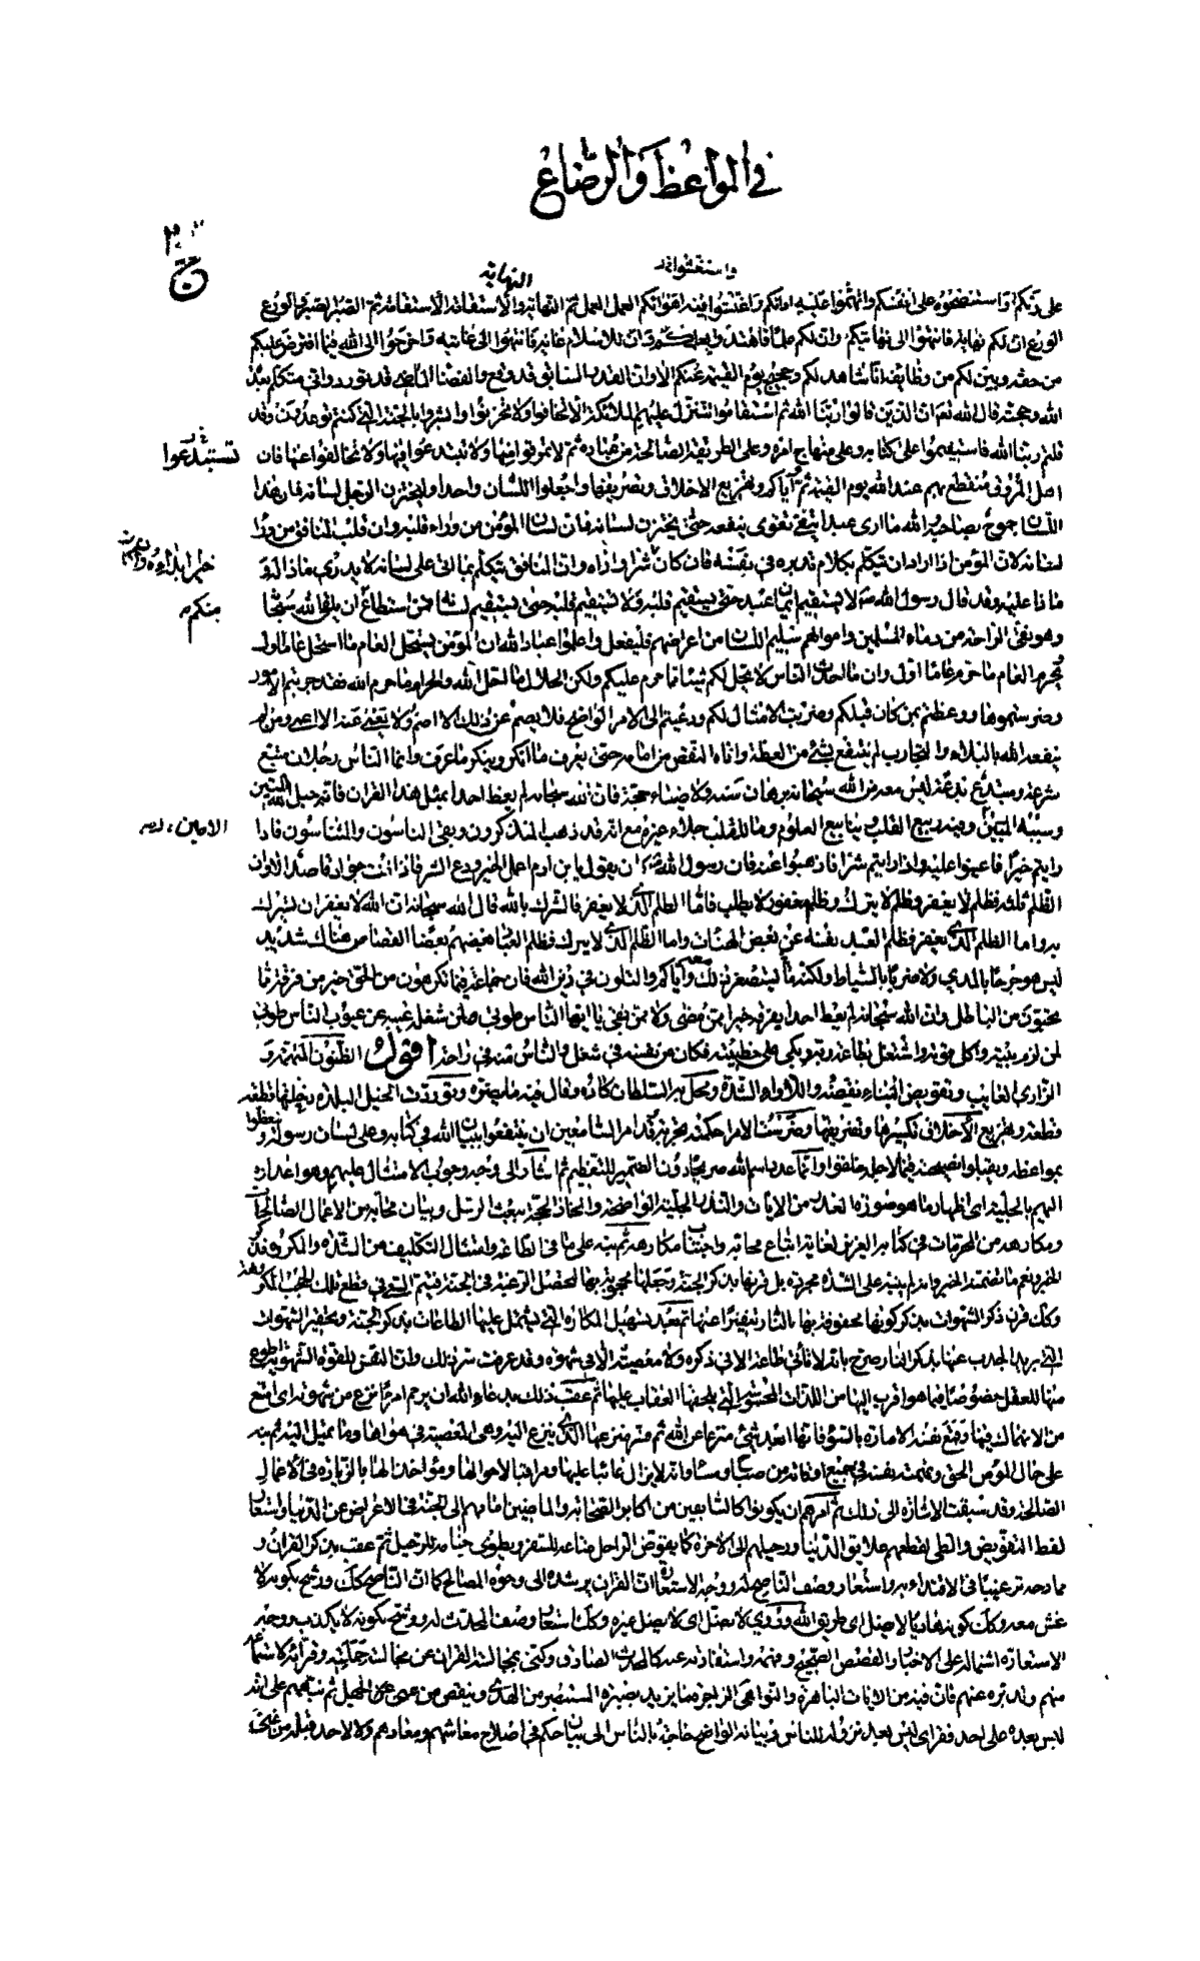 في المواعظ والرضاع
واستغشوا فيه
النهاية
على ربكم واستنصحوه على أنفسكم واتهموا عليه اراءكم واغتشوا فيه اهواءكم العمل العمل ثم النهاية والاستقامة الاستقامة ثم الصبر الصبر والورع
الورع ان لكم نهاية فانتهوا الى نهايتكم وان لكم علما فاهتدوا بعلمكم وان للاسلام غاية فانتهوا الى غايته واخرجوا الى الله فيما افترض عليكم
من حقه وبين لكم من وظائفه انا شاهد لكم وحجيج يوم القيمة عنكم الا وان القدر السابق قد وقع والقضاء الماضي قد تورد واني متكلم بعدة
الله وحجته قال الله تعالى ان الذين قالوا ربنا الله ثم استقاموا تتنزل عليهم الملائكة الا تخافوا ولا تحزنوا وابشروا بالجنة التي كنتم توعدون وقد
قلتم ربنا الله فاستقيموا على كتابه وعلى منهاج امره وعلى الطريقة الصالحة من عبادته ثم لا تمرقوا منها ولا تبتدعوا فيها ولا تخالفوا عنها فان
اهل المروق منقطع بهم عند الله يوم القيمة ثم اياكم وتهزيع الاخلاق وتصريفها واجعلوا اللسان واحدا وليختزن الرجل لسانه فان هذا
اللسان جموح بصاحبه والله ما ارى عبدا يتقي تقوى ينفعه حتى يختزن لسانه فان لسان المؤمن من وراء قلبه وان قلب المنافق من وراء
لسانه لان المؤمن اذا اراد ان يتكلم بكلام تدبره في نفسه فان كان شرا واراه وان المنافق يتكلم بما اتى على لسانه لا يدري ماذا له و
ماذا عليه وقد قال رسول الله لا يستقيم ايمان عبد حتى يستقيم قلبه ولا يستقيم قلبه حتى يستقيم لسانه فمن استطاع ان يلقى الله سبحانه
وهو نقي الراحة من دماء المسلمين واموالهم سليم اللسان من اعراضهم فليفعل واعلموا عباد الله ان المؤمن يستحل العام ما استحل عاما اول
ويحرم العام ما حرم عاما اول وان ما احدث الناس لا يحل لكم شيئا مما حرم عليكم ولكن الحلال ما احل الله والحرام ما حرم الله فقد جربتم الامور
وضرستموها ووعظتم بمن كان قبلكم وضربت الامثال لكم ودعيتم الى الامر الواضح فلا يصم عن ذلك الا اصم ولا يعمى عنه الا اعمى ومن لم
ينفعه الله بالبلاء والتجارب لم ينتفع بشئ من العظة واتاه النقص من امامه حتى يعرف ما انكر وينكر ما عرف وانما الناس رجلان متبع
شرعة ومبتدع بدعة ليس معه من الله سبحانه برهان سنة ولا ضياء حجة فان الله سبحانه لم يعظ احدا بمثل هذا القران فانه حبل الله المتين
وسببه المبين وفيه ربيع القلب وينابيع العلوم وما للقلب جلاء غيره مع انه قد ذهب المتذكرون وبقي الناسون والمتناسون فاذا
رايتم خيرا فاعينوا عليه واذا رايتم شرا فاذهبوا عنه فان رسول الله كان يقول يا بن ادم اعمل الخير ودع الشر فاذا انت جواد قاصد الا وان
الظلم ثلثة فظلم لا يغفر وظلم لا يترك وظلم مغفور لا يطلب فاما الظلم الذي لا يغفر فالشرك بالله قال الله سبحانه ان الله لا يغفر ان يشرك
به واما الظلم الذي يغفر فظلم العبد نفسه عند بعض الهنات واما الظلم الذي لا يترك فظلم العباد بعضهم بعضا القصاص هناك شديد
ليس هو جرحا بالمدى ولا ضربا بالسياط ولكنه ما يستصغر ذلك معه واياكم والتلون في دين الله فان جماعة فيما تكرهون من الحق خير من فرقة فيما
تحبون من الباطل وان الله سبحانه لم يعط احدا بفرقة خيرا ممن مضى ولا ممن بقي يا ايها الناس طوبى لمن شغله عيبه عن عيوب الناس وطوبى
لمن لزم بيته واكل قوته واشتغل بطاعة ربه وبكى على خطيئته فكان من نفسه في شغل والناس منه في راحة اقول الظنون المتهمة و
الزاري العايب وتقويض البناء نقضه واللأواء الشدة ومحل به السلطان كاده وقال فيه ما يضره وتوردت الخيل البلدة دخلتها قطعة
قطعة وتهزيع الأخلاق تكسيرها وتفريقها وضرستنا الامر احكمته تجربة قد امر السامعين ان ينتفعوا ببيان الله في كتابه وعلى لسان رسوله ويتعظوا
بمواعظه ويقبلوا نصيحته فيما لاجله خلقوا وانما عدد اسم الله صريحا دون الضمير للتعظيم ثم اشار الى وجه وجوب الامتثال عليهم وهو اعذاره
اليهم بالجلية اي اظهار ما هو صورة العذر من الايات والنذر الجلية الواضحة واتخاذ الحجة ببعث الرسل وبيان محابه من الاعمال الصالحات
ومكارهه من المحرمات في كتابه العزيز لغاية اتباع محابه واجتناب مكارهه ثم نبه على ما في الطاعة وامتثال التكليف من الشدة والمكروه بذكر
الخبر ونعم ما تضمنته الخبر وانه لم ينبه على الشدة مجردة بل قرنها بذكر الجنة وجعلها محجوبة بها لتحصل الرغبة في الجنة فيتم السعي في قطع تلك الحجب المكروهة
وكذلك قرن ذكر الشهوات بذكر كونها محفوفة بها النار تنفيرا عنها ثم بعد تسهيل المكاره التي تشتمل عليها الطاعات بذكر الجنة وتحقير الشهوات
التي يريد الجذب عنها بذكر النار صرح بانه لا تأتي طاعة الا في كره ولا معصية الا في شهوة وقد عرفت سر ذلك وان النفس للقوة الشهوية اطوع
منها للعقل خصوصا فيما هو اقرب اليها من اللذات المحسوسة التي يلحقها العقاب عليها ثم عقب ذلك بدعاء الله ان يرحم امرء نزع من شهوته اي امتنع
من الانهماك فيها وقمع نفسه الامارة بالسوء فانها ابعد شئ منزعا عن الله ثم فسر منزعها الذي ينزع اليه وهي المعصية في هواها وما تميل اليه ثم نبه
على حال المؤمن الحق وتهمته نفسه في جميع اوقاته من صباح ومساء وانه لا يزال عائبا عليها ومراقبا لاحوالها ومؤاخذا لها بالزيادة في الأعمال
الصالحة وقد سبقت الاشارة الى ذلك ثم امرهم ان يكونوا كالسابقين من اكابر الصحابة والماضين امامهم الى الجنة في الاعراض عن الدنيا واستعار
لفظ التقويض والطي لقطعهم علايق الدنيا ورحيلهم الى الاخرة كما يقوض الراحل متاعه للسفر ويطوى خباءه للرحيل ثم عقب بذكر القرآن و
ممادحه ترغيبا في الاقتداء به واستعار وصف الناصح له ووجه الاستعارة ان القران يرشد الى وجوه المصالح كما ان الناصح كذلك ورشح بكونه لا
يغش معه وكذلك كونه هاديا لا يضل اي طريق الله وروي لا يضل اي لا يضل غيره وكذلك استعار وصف المحدث له ورشح بكونه لا يكذب ووجه
الاستعارة اشتماله على الاخبار والقصص الصحيح وفهمه واستفادته عنه كالمحدث الصادق وكنى بمجالسة القران عن مجالسة حملته وقرائه لاستماعه
منهم وتدبره عنهم فان فيه من الايات الباهرة والنواهي الزاجرة ما يزيد بصيرة المستبصر من الهدى وينقص من عمى الجهل ثم نبههم على انه
ليس بعده على احد فقر اي ليس بعد نزوله للناس وبيانه الواضح حاجة بالناس الى بيان حكم في اصلاح معاشهم ومعادهم ولا لاحد قبله من غنى
ج
تستبدعوا
خيرا ابداه
منكره
الامين